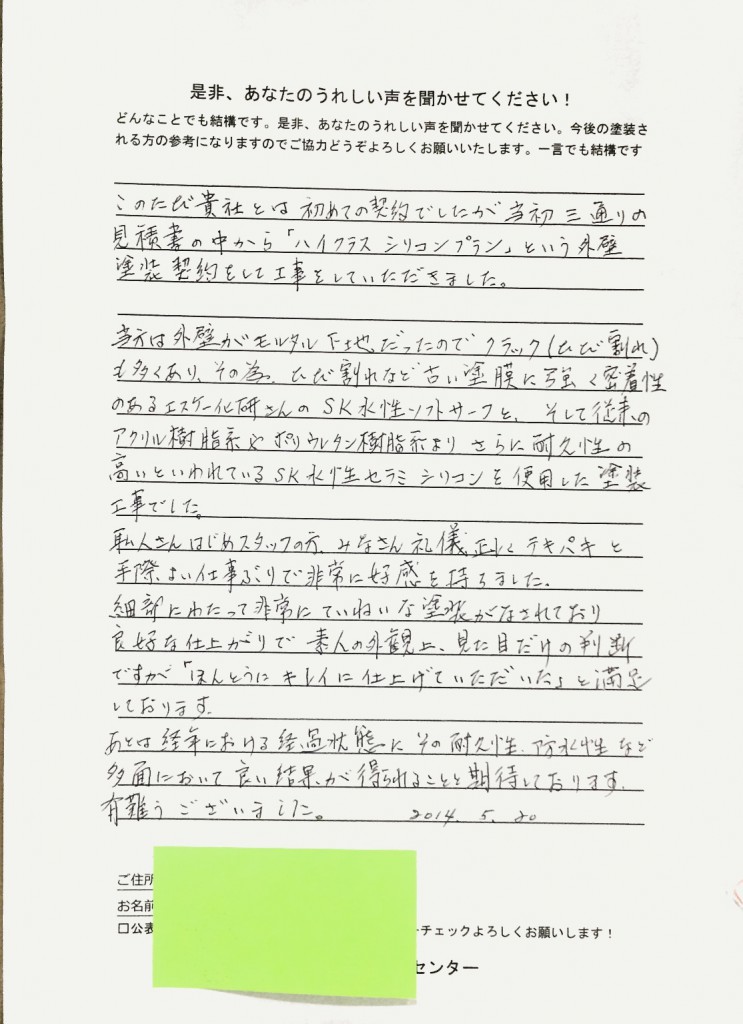 是非、あなたのうれしい声を聞かせてください!
どんなことでも結構です。是非、あなたのうれしい声を聞かせてください。今後の塗装さ
れる方の参考になりますのでご協力どうぞよろしくお願いいたします。一言でも結構です
このたび貴社とは初めての契約でしたが当初三通りの
見積書の中から「ハイクラスシリコンプラン」という外壁
塗装契約をして工事をしていただきました。
当方は外壁がモルタル下地だったのでクラック(ひび割れ)
も多くあり、その為、ひび割れなど古い塗膜に強く密着性
のあるエスケー化研さんのSK水性ソフトサーフと、そして従来の
アクリル樹脂系やポリウレタン樹脂系よりさらに耐久性の
高いといわれているSK水性セラミシリコンを使用した塗装
工事でした。
職人さんはじめスタッフの方、みなさん礼儀正しくテキパキと
手際よい仕事ぶりで非常に好感を持ちました。
細部にわたって非常にていねいな塗装がなされており
良好な仕上がりで素人の外観上、見た目だけの判断
ですが「ほんとうにキレイに仕上げていただいた」と満足
しております。
あとは経年における経過状態にその耐久性、防水性など
多面において良い結果が得られることと期待しております。
有難うございました。 2014.5.20
ご住所
お名前
□公表
チェックよろしくお願いします!
センター